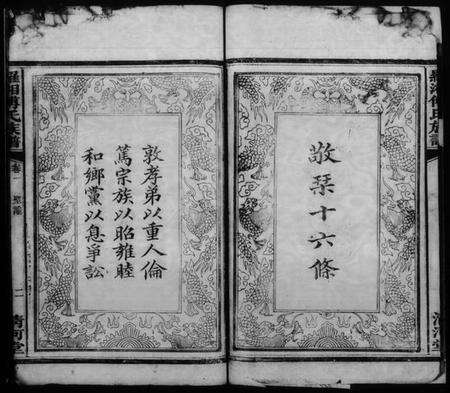 敬栞十六條
敦孝弟以重人倫
篤宗族以昭雍睦
和鄉黨以息爭訟
傅氏族譜
卷一
聖諭
二
清河堂